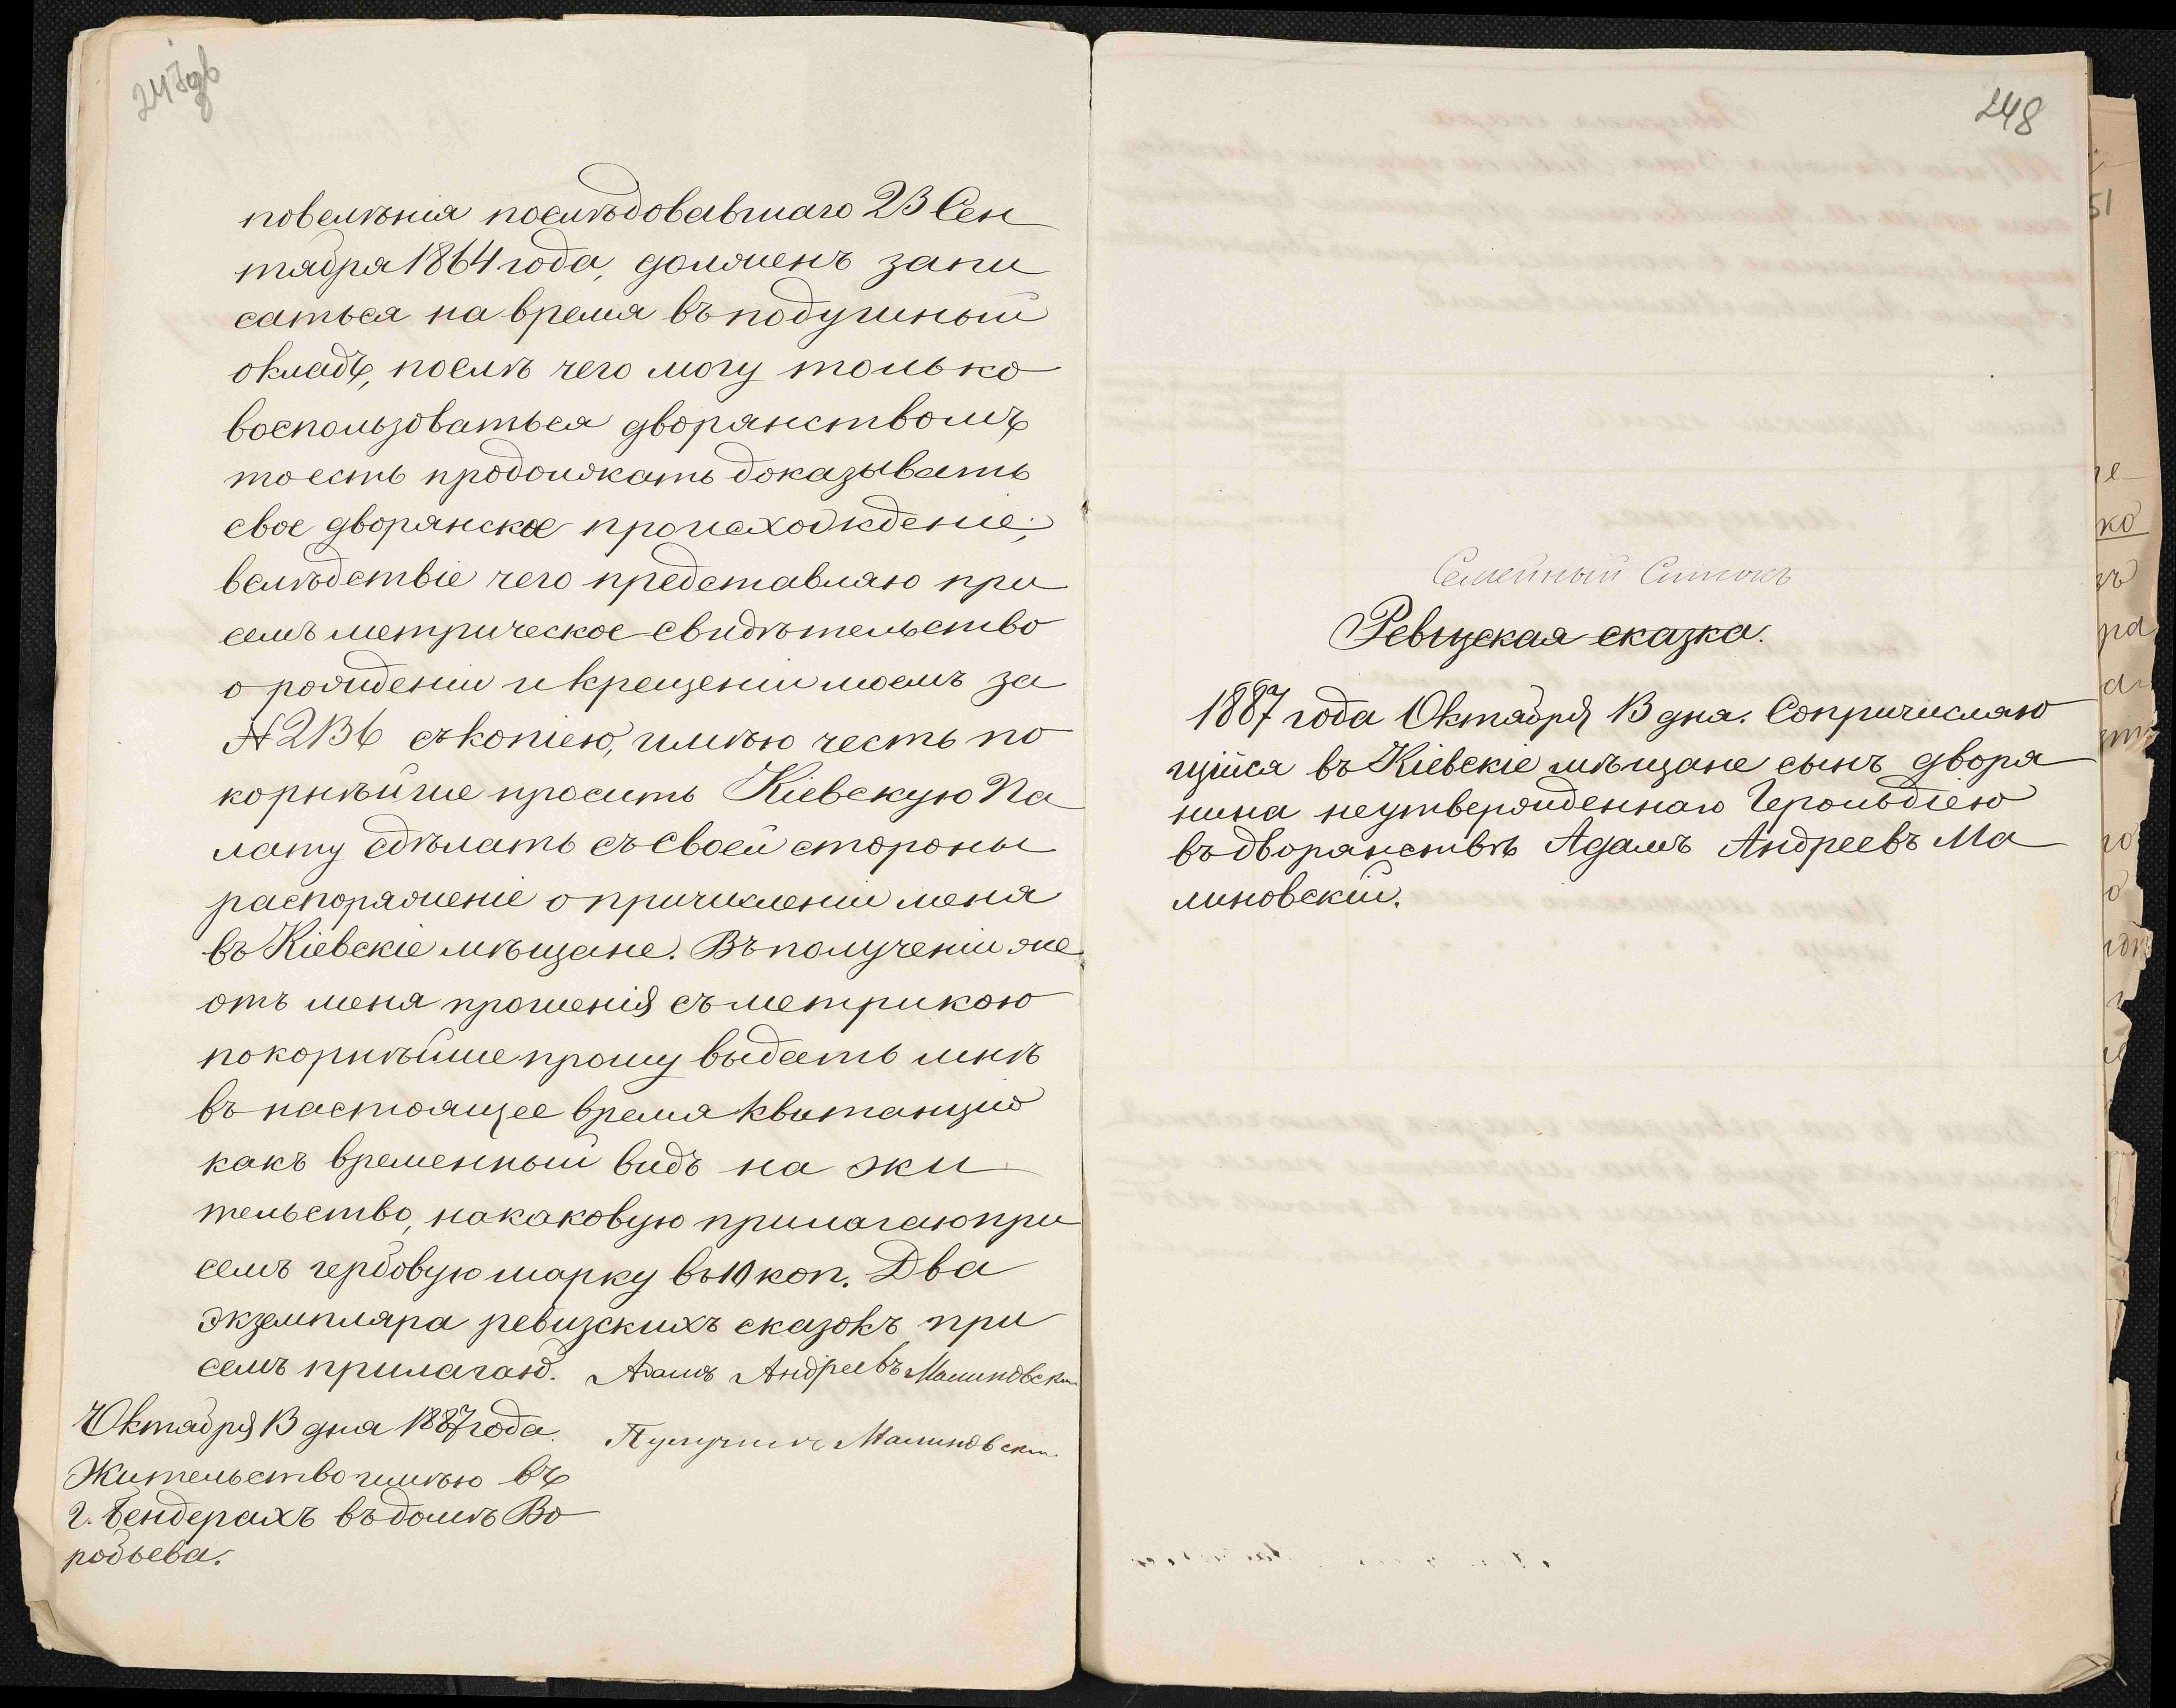 247об
повелѣнія послѣдовавшаго 23 Сен
тября 1864 года, долженъ запи
саться на время въ подушный
окладъ, послѣ чего могу только
воспользоваться дворянствомъ
то есть продолжать доказывать
свое дворянское происхожденіе;
вслѣдствіе чего представляю при
семъ метрическое свидѣтельство
о рожденіи и крещеніи моемъ за
№ 236 съ копіею, имѣю честь по
корнѣйше просить Кіевскую Па
лату сдѣлать съ своей стороны
распоряженіе о причисленіи меня
въ Кіевскіе мѣщане. Въ полученіи же
отъ меня прошенія съ метрикою
покорнѣйше прошу выдать мнѣ
въ настоящее время квитанцію
какъ временный видъ на жи
тельство, на каковую прилагаю при
семъ гербовую марку въ 10 коп. Два
экземпляра ревизскихъ сказокъ при
семъ прилагаю. Адамъ Андреевъ Малиновскій
Октября 13 дня 1887 года.
Малиновскій
Жительство имѣю въ
г. Бендерахъ въ домѣ Во
робьева.
248
Семейный Списокъ
Ревизская сказка.
1887 года Октября 13 дня. Сопричисляю
щійся въ Кіевскіе мѣщане сынъ дворя
нина неутвержденнаго Герольдіею
въ дворянствѣ Адамъ Андреевъ Ма
линовскій.